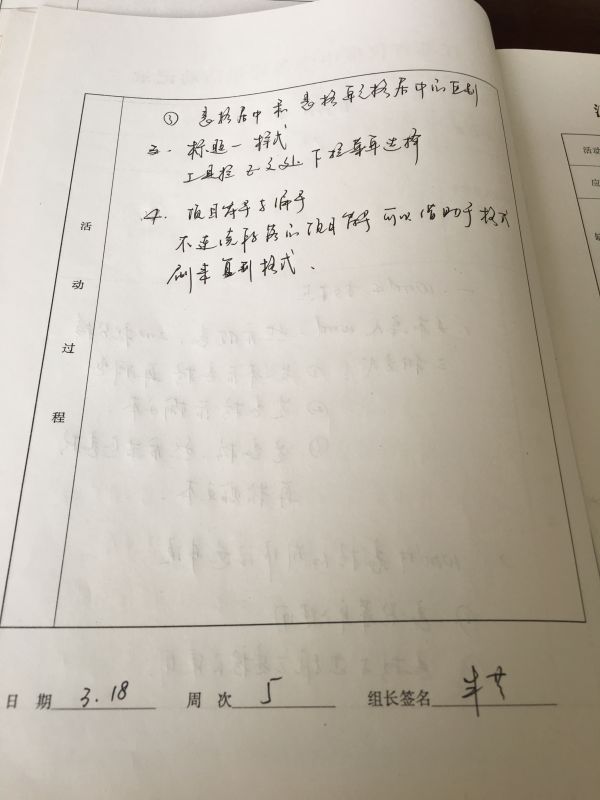 ③ 表格居中和表格单元格居中的区别
三. 标题一样式
工具栏正文处下拉菜单选择
4. 项目符号与编号
不连续段落的项目符号可以借助于格式
刷来复制格式.
活动过程
日 期 3.18 周 次 5 组长签名
活动
应